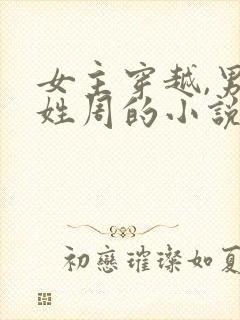 女主穿越,男
姓周的小說
初戀璀璨如夏